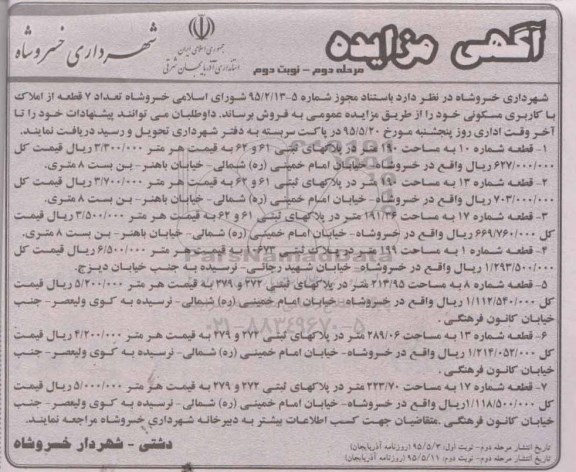 آگهی مزایده
مرحله دوم - نوبت دوم
جمهوری اسلامی ایران
استانداری آذربایجان شرقی
شهرداری خسروشاه
شهرداری خسروشاه در نظر دارد باستناد مجوز شماره ۵-۹۵/۲/۱۳ شورای اسلامی خسروشاه تعداد ۷ قطعه از املاک
با کاربری مسکونی خود را از طریق مزایده عمومی به فروش برساند. داوطلبان می توانند پیشنهادات خود را تا
آخر وقت اداری روز پنجشنبه مورخ ۹۵/۵/۲۰ در پاکت سربسته به دفتر شهرداری تحویل و رسید دریافت نمایند.
۱- قطعه شماره ۱۰ به مساحت ۱۹۰ متر در پلاکهای ثبتی ۶۱ و ۶۲ به قیمت هر متر ۳/۳۰۰/۰۰۰ ریال قیمت کل
۶۲۷/۰۰۰/۰۰۰ ریال واقع در خسروشاه- خیابان امام خمینی (ره) شمالی- خیابان باهنر- بن بست ۸ متری.
۲- قطعه شماره ۱۳ به مساحت ۱۹۰ متر در پلاکهای ثبتی ۶۱ و ۶۲ به قیمت هر متر ۳/۷۰۰/۰۰۰ ریال قیمت کل
۷۰۳/۰۰۰/۰۰۰ ریال واقع در خسروشاه- خیابان امام خمینی (ره) شمالی- خیابان باهنر- بن بست ۸ متری.
۳- قطعه شماره ۱۷ به مساحت ۱۹۱/۳۶ متر در پلاکهای ثبتی ۶۱ و ۶۲ به قیمت هر متر ۳/۵۰۰/۰۰۰ ریال قیمت
کل ۶۶۹/۷۶۰/۰۰۰ ریال واقع در خسروشاه- خیابان امام خمینی (ره) شمالی- خیابان باهنر- بن بست ۸ متری.
۴- قطعه شماره ۱ به مساحت ۱۹۹ متر در پلاک ثبتی ۱۰۶۷۳ به قیمت هر متر ۶/۵۰۰/۰۰۰ ریال قیمت کل
۱/۲۹۳/۵۰۰/۰۰۰ ریال واقع در خسروشاه- خیابان شهید رجائی- نرسیده به جنب خیابان دیزج.
۵- قطعه شماره ۸ به مساحت ۲۱۳/۹۵ متر در پلاکهای ثبتی ۲۷۲ و ۲۷۹ به قیمت هر متر ۵/۲۰۰/۰۰۰ ریال قیمت
کل ۱/۱۱۲/۵۴۰/۰۰۰ ریال واقع در خسروشاه- خیابان امام خمینی (ره) شمالی- نرسیده به کوی ولیعصر- جنب
خیابان کانون فرهنگی.
۶- قطعه شماره ۱۳ به مساحت ۲۸۹/۰۶ متر در پلاکهای ثبتی ۲۷۲ و ۲۷۹ به قیمت هر متر ۴/۲۰۰/۰۰۰ ریال قیمت
کل ۱/۲۱۴/۰۵۲/۰۰۰ ریال واقع در خسروشاه- خیابان امام خمینی (ره) شمالی- نرسیده به کوی ولیعصر- جنب
خیابان کانون فرهنگی.
۷- قطعه شماره ۱۷ به مساحت ۲۲۳/۷۰ متر در پلاکهای ثبتی ۲۷۲ و ۲۷۹ به قیمت هر متر ۵/۰۰۰/۰۰۰ ریال قیمت
کل ۱/۱۱۸/۵۰۰/۰۰۰ ریال واقع در خسروشاه- خیابان امام خمینی (ره) شمالی- نرسیده به کوی ولیعصر- جنب
خیابان کانون فرهنگی. متقاضیان جهت کسب اطلاعات بیشتر به دبیرخانه شهرداری خسروشاه مراجعه نمایند.
تاریخ انتشار مرحله دوم- نوبت اول: ۹۵/۵/۳ (روزنامه آذربایجان)
تاریخ انتشار مرحله دوم- نوبت دوم: ۹۵/۵/۱۱ (روزنامه آذربایجان)
دشتی - شهردار خسروشاه
ParsNamadData
۰۲۱-۸۸۳۴۹۶۷۰-۵